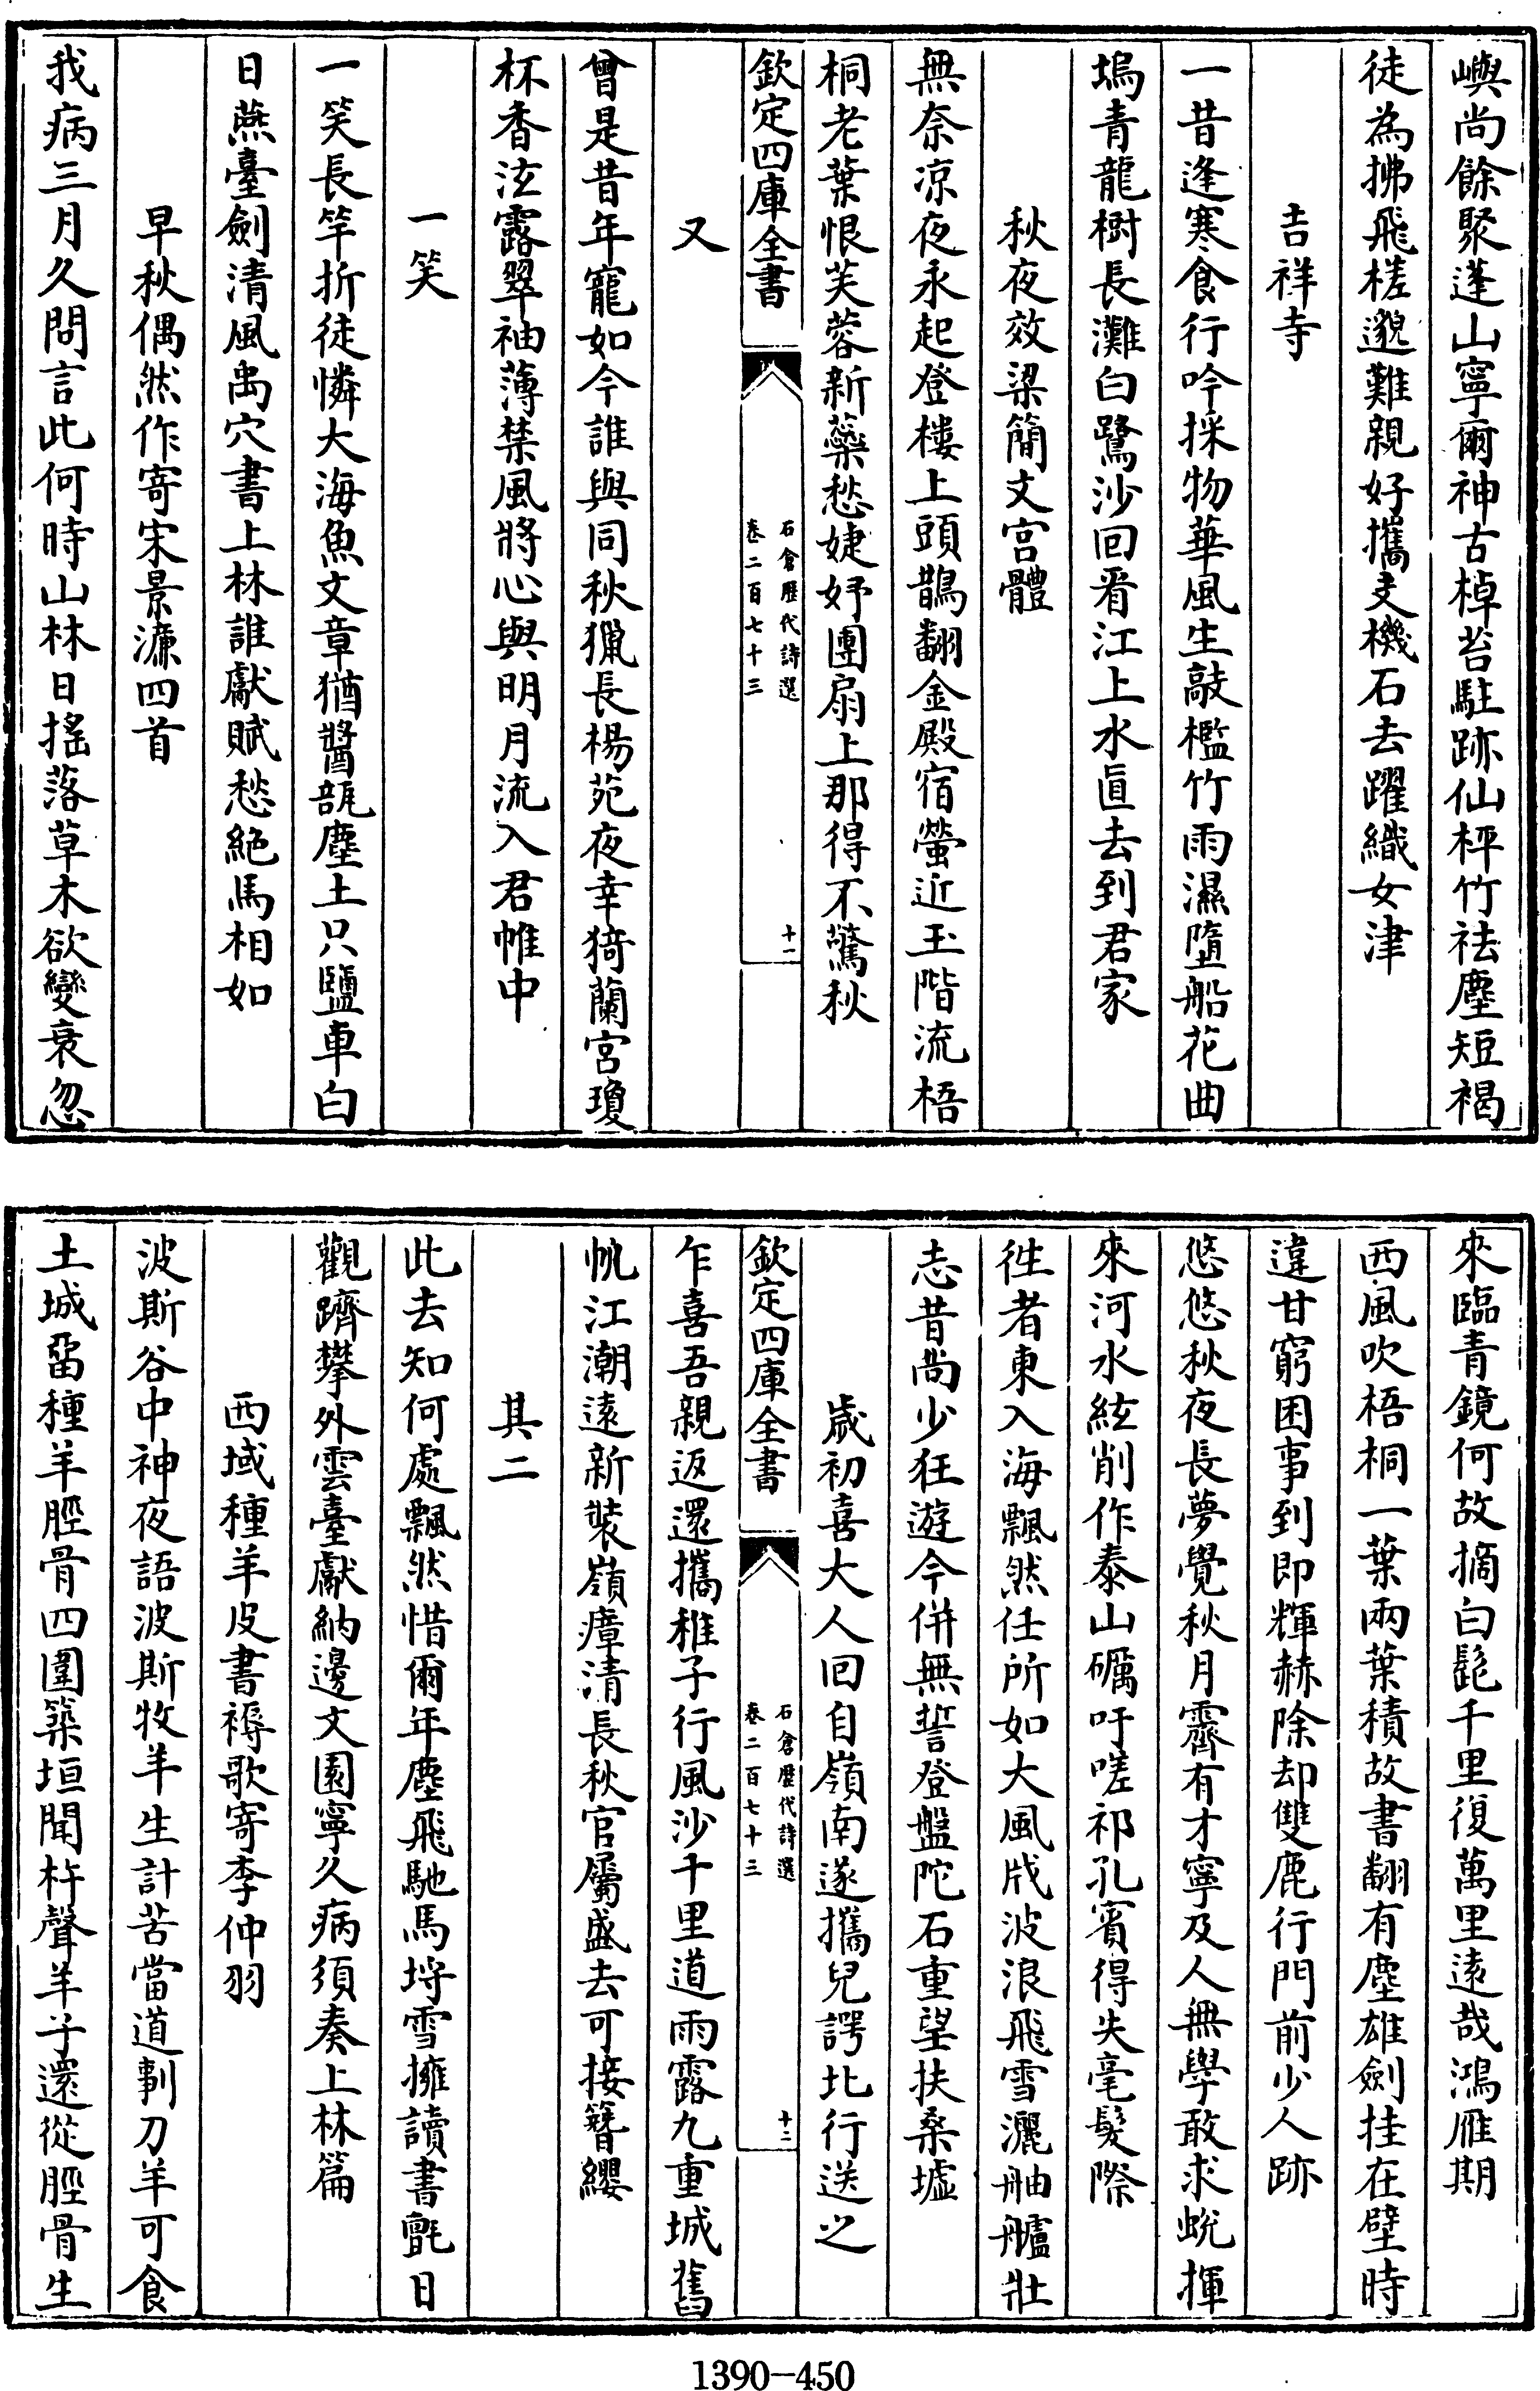 嶼尚餘聚蓬山寧爾神古棹苔駐跡仙枰竹祛塵短褐
徒為拂飛槎邈難親好攜支機石去躍織女津
吉祥寺
一昔逢寒食行吟採物華風生敲檻竹雨濕墮船花曲
塢青龍樹長灘白鷺沙回看江上水直去到君家
秋夜效梁簡文宮體
無奈凉夜永起登樓上頭鵲翻金殿宿螢近玉階流梧
桐老葉恨芙蓉新蘂愁婕妤團扇上那得不驚秋
欽定四庫全書
石倉歷代詩選
卷二百七十三
十一
又
曾是昔年寵如今誰與同秋獵長楊苑夜幸猗蘭宮瓊
杯香泫露翠袖薄禁風將心與明月流入君帷中
一笑
一笑長竿折徒憐大海魚文章猶醬瓿塵土只鹽車白
日燕臺劍清風禹穴書上林誰獻賦愁絕馬相如
早秋偶然作寄宋景濂四首
我病三月久問言此何時山林日搖落草木欲變衰忽
來臨青鏡何故摘白髭千里復萬里遠哉鴻雁期
西風吹梧桐一葉兩葉積故書翻有塵雄劍挂在壁時
違甘窮困事到即輝赫除却雙鹿行門前少人跡
悠悠秋夜長夢覺秋月霽有才寧及人無學敢求蛻揮
來河水絃削作泰山礪吁嗟祁孔賓得失毫髮際
徃者東入海飄然任所如大風戕波浪飛雪灑舳艫壯
志昔尚少狂遊今併無誓登盤陀石重望扶桑墟
歲初喜大人回自嶺南遂攜兒諤北行送之
欽定四庫全書
石倉歷代詩選
卷二百七十三
十二
乍喜吾親返還攜稚子行風沙千里道雨露九重城舊
帆江潮遠新裝嶺瘴清長秋官屬盛去可接簪纓
其二
此去知何處飄然惜爾年塵飛馳馬埒雪擁讀書氈日
觀躋攀外雲臺獻納邊文園寧久病須奏上林篇
西域種羊皮書褥歌寄李仲羽
波斯谷中神夜語波斯牧羊生計苦當道剚刀羊可食
土城畱種羊脛骨四圍築垣聞杵聲羊子還從脛骨生
1390-450